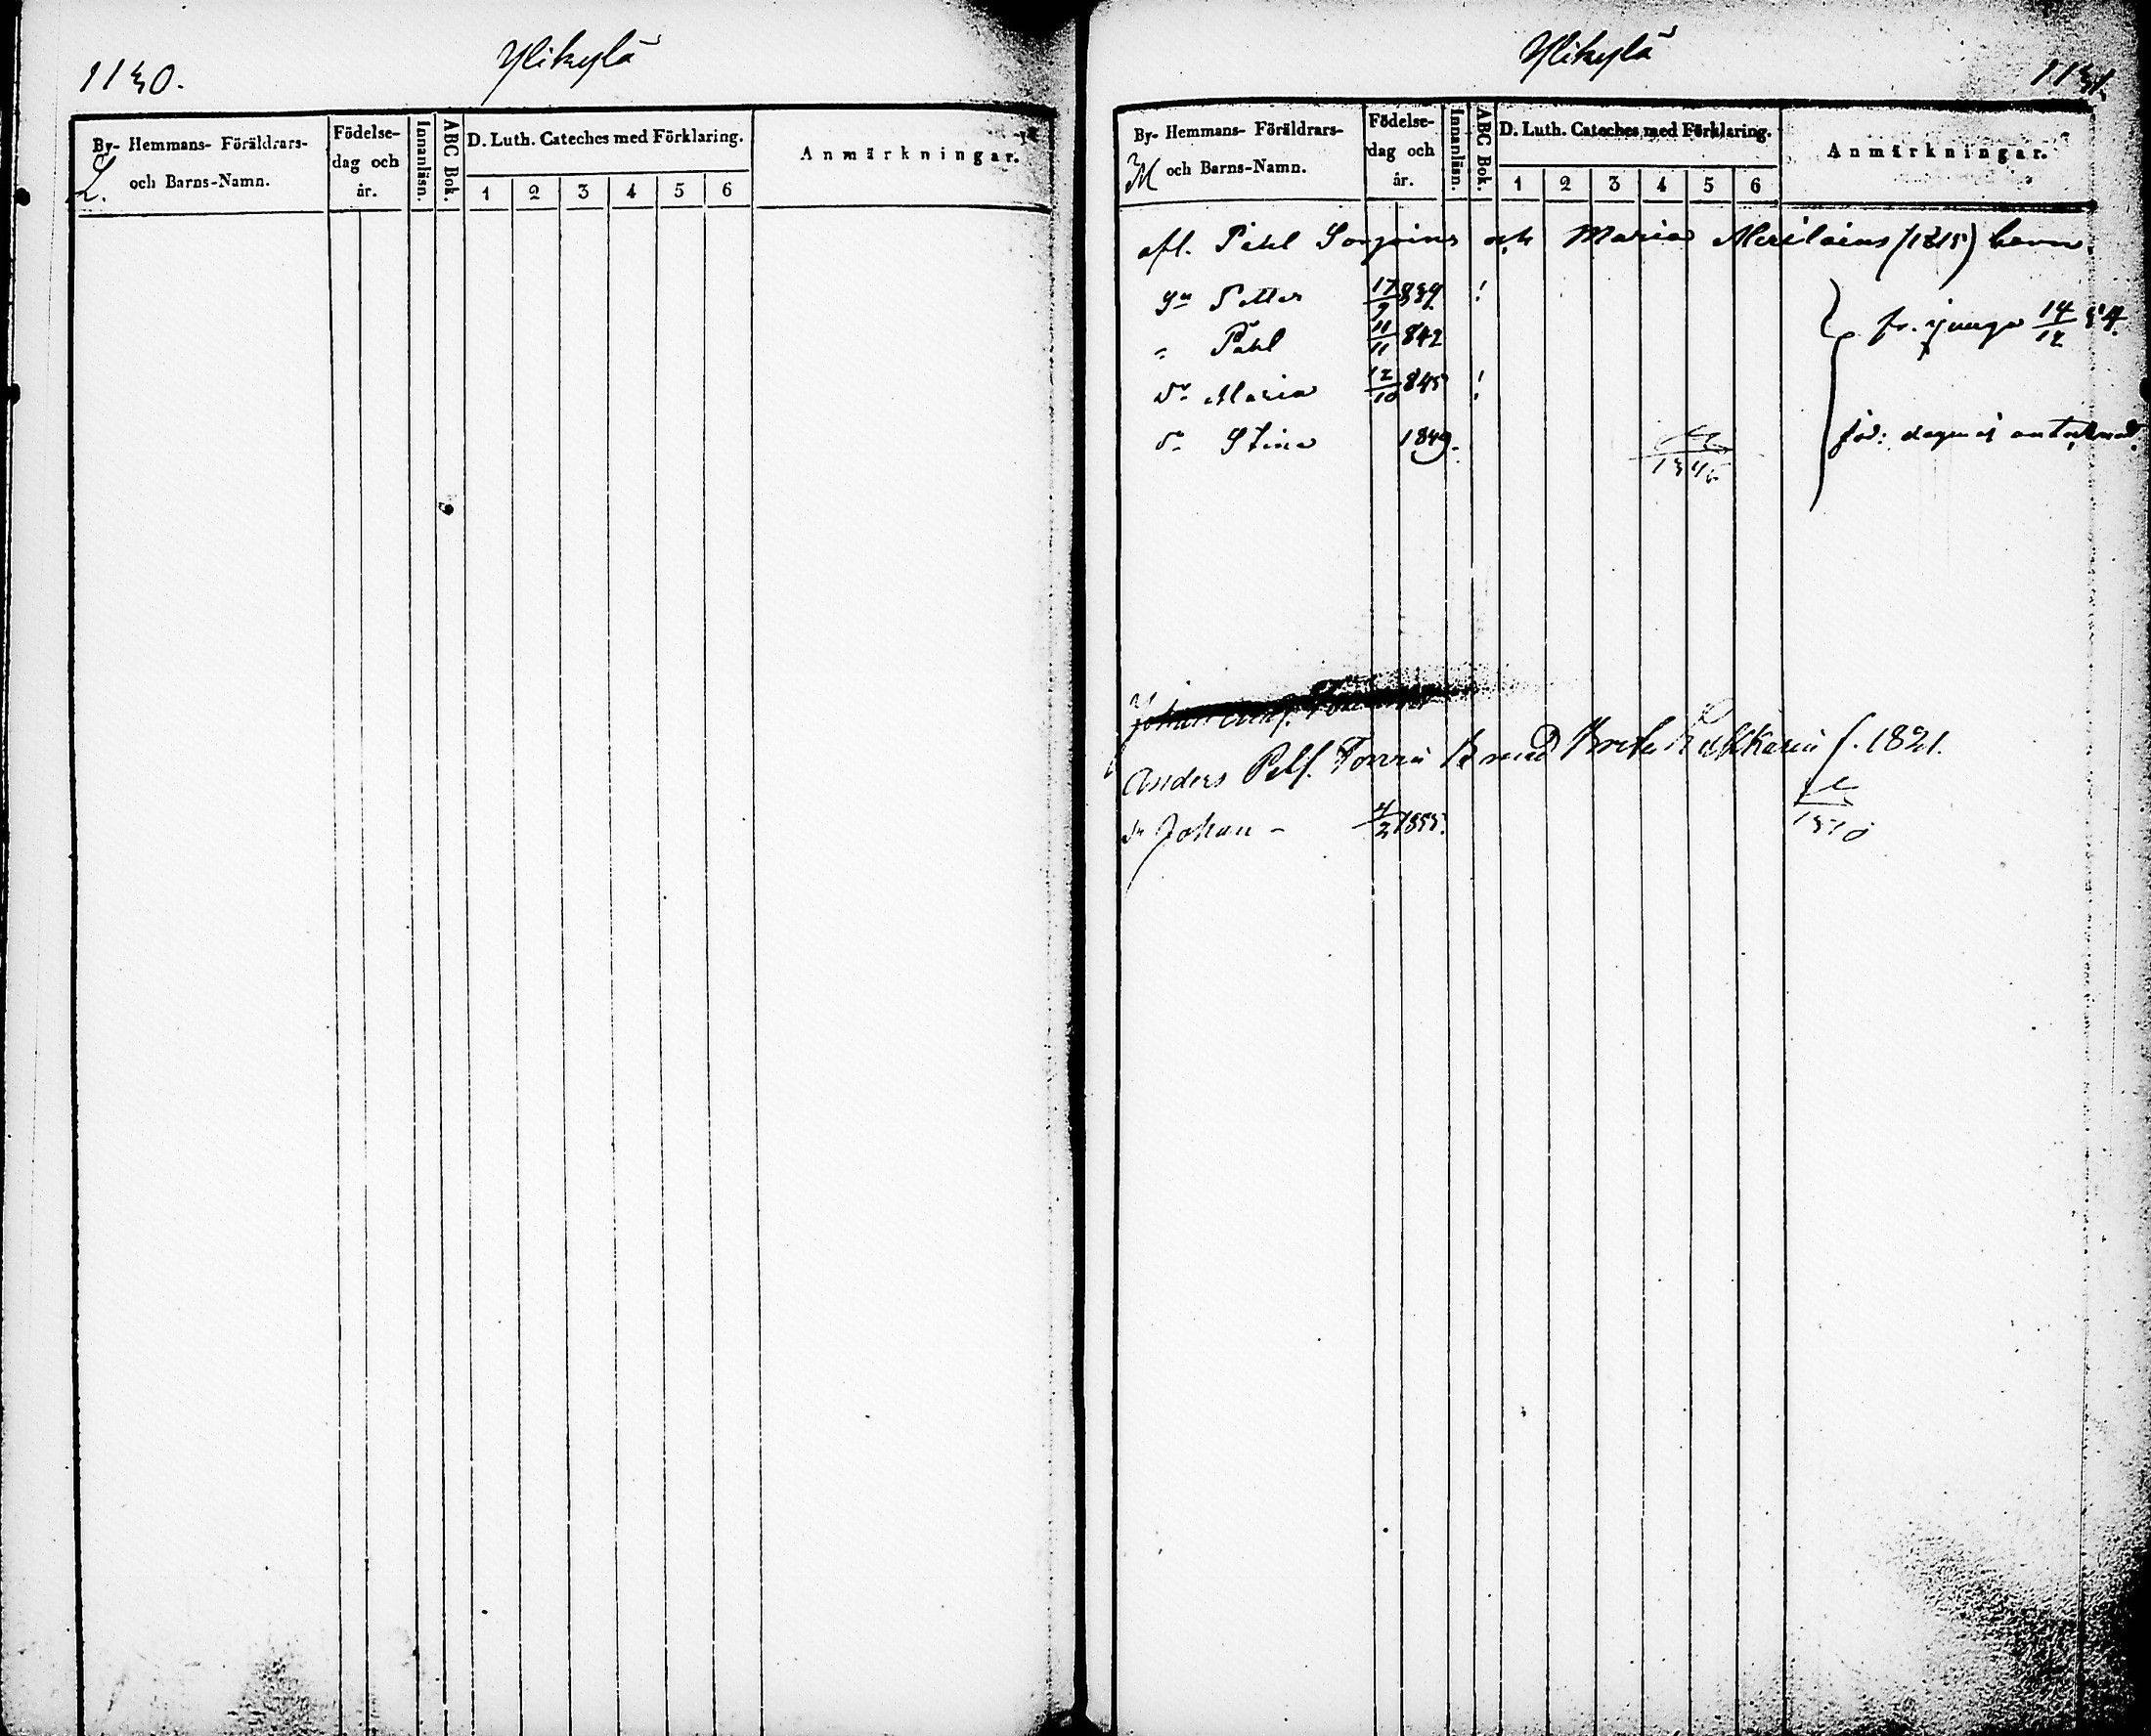 1130.
Ylikylä
By- Hemmans- Föräldrars-
och Barns-Namn.
L.
Födelse-
dag och
år.
Innanläsn.
ABC Bok.
D. Luth. Cateches med Förklaring.
1 2 3 4 5 6
Anmärkningar.
Ylikylä
1131.
By- Hemmans- Föräldrars-
och Barns-Namn.
M
Födelse-
dag och
år.
Innanläsn.
ABC Bok.
D. Luth. Cateches med Förklaring.
1 2 3 4 5 6
Anmärkningar.
afl. Påhl och Maria Meriläins (1815) barn.
Sn Petter 17/9 839 !
" Påhl 11/11 842 fr. 14/12 54.
Dr Maria 12/10 845 !
Dr Stina 1849. föd: dagen ej antecknad.
Johan
Anders Brita f. 1821.
Sn Johan - 4/2 1855.